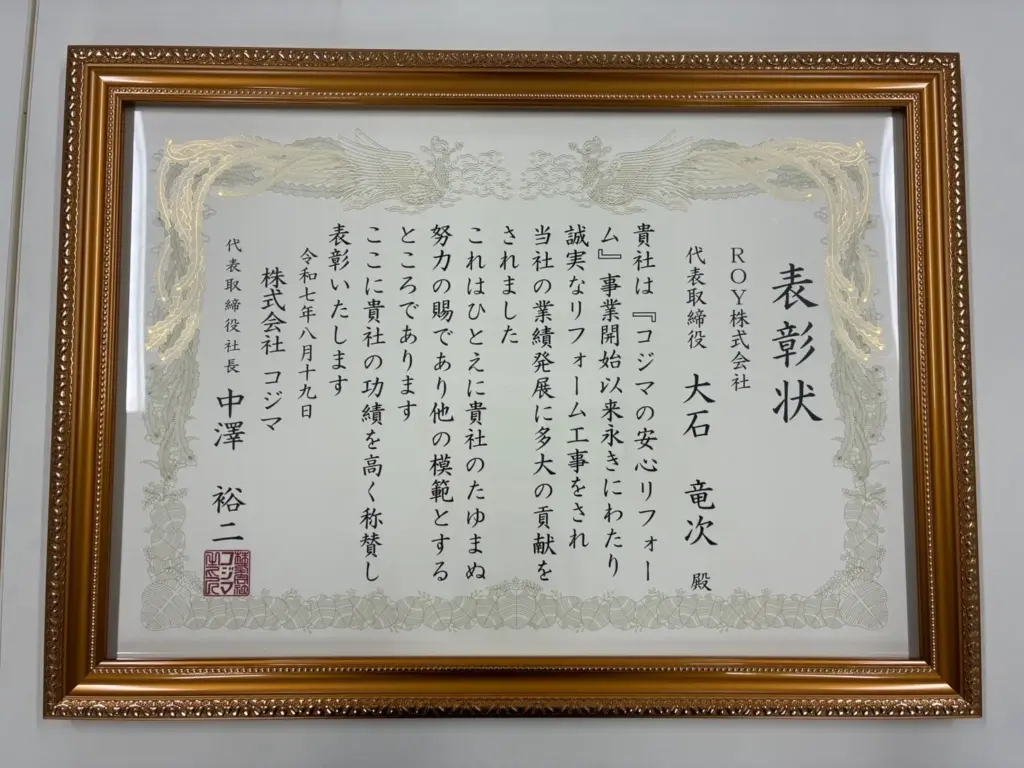 表彰状
ROY株式会社
代表取締役 大石 竜次 殿
貴社は『コジマの安心リフォー
ム』事業開始以来永きにわたり
誠実なリフォーム工事をされ
当社の業績発展に多大の貢献を
されました
これはひとえに貴社のたゆまぬ
努力の賜であり他の模範とする
ところであります
ここに貴社の功績を高く称賛し
表彰いたします
令和七年八月十九日
株式会社 コジマ
代表取締役社長 中澤 裕二
株式会社
コジマ
之印